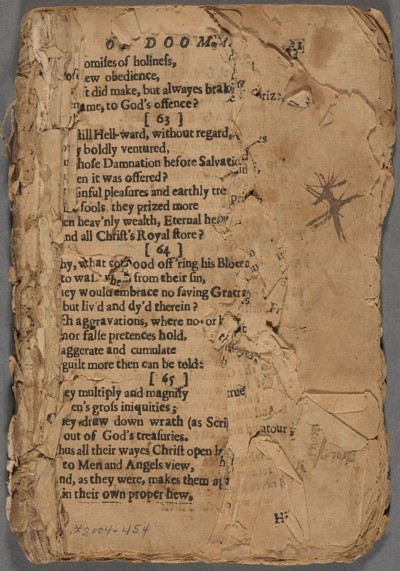 OF DOOM.
omises of holiness,
ew obedience,
t did make, but alwayes brak
ame, to God's offence?
[ 63 ]
till Hell-ward, without regard,
boldly ventured,
hose Damnation before Salvatio
en it was offered?
sinful pleasures and earthly tre
fools, they prized more
en heav'nly wealth, Eternal he
nd all Christ's Royal store?
[ 64 ]
hy, what good off'ring his Blood
to wa from their sin,
hey would embrace no saving Grace
but liv'd and dy'd therein?
ch aggravations, where no
nor false pretences hold,
aggerate and cumulate
guilt more then can be told:
[ 65 ]
ey multiply and magnify true
en's gross iniquities;
hey draw down wrath (as Scri atour
out of God's treasuries.
hus all their wayes Christ open l
to Men and Angels view,
nd, as they were, makes them ap
in their own proper hew. H
*2004-454